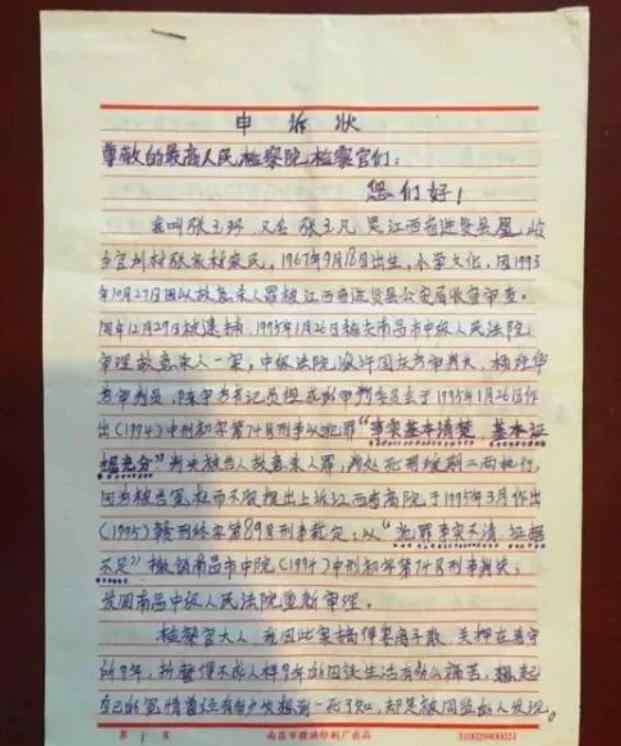 申诉状
尊敬的最高人民检察院检察官们:
您们好!
我叫张玉环 又名 张玉凡 是江西省进贤县
村张家村农民,1967年9月18日出生,小学文化,因1993
年10月27日因以故意杀人罪被江西省进贤县公安局收容审查。
同年12月29日被逮捕,1995年1月26日被南昌市中级人民法院
审理故意杀人一案,中级法院
审判员,书记员组成刑审判委员会于1995年1月26日作
出(1994)中刑初字第74号刑事以犯罪“事实基本清楚,基本证
据充分”判决被告人故意杀人罪,判处死刑缓期二年执行,
因为被告冤枉而不服提出上诉江西省高院于1995年3月作出
(1995)赣刑终字第89号刑事裁定,以“犯罪事实不清 证据
不足”撤销南昌市中院(1994)中刑初字第74号刑事判决,
发回南昌中级人民法院重新审理。
检察官大人,我因此案搞得妻离子散,关押在看守
所9年,折磨得不成人样9年的囚徒生活有多么痛苦,想起
自己的冤情曾经有多少次想到一死了知,却是被同监的人发现。
第 1 页